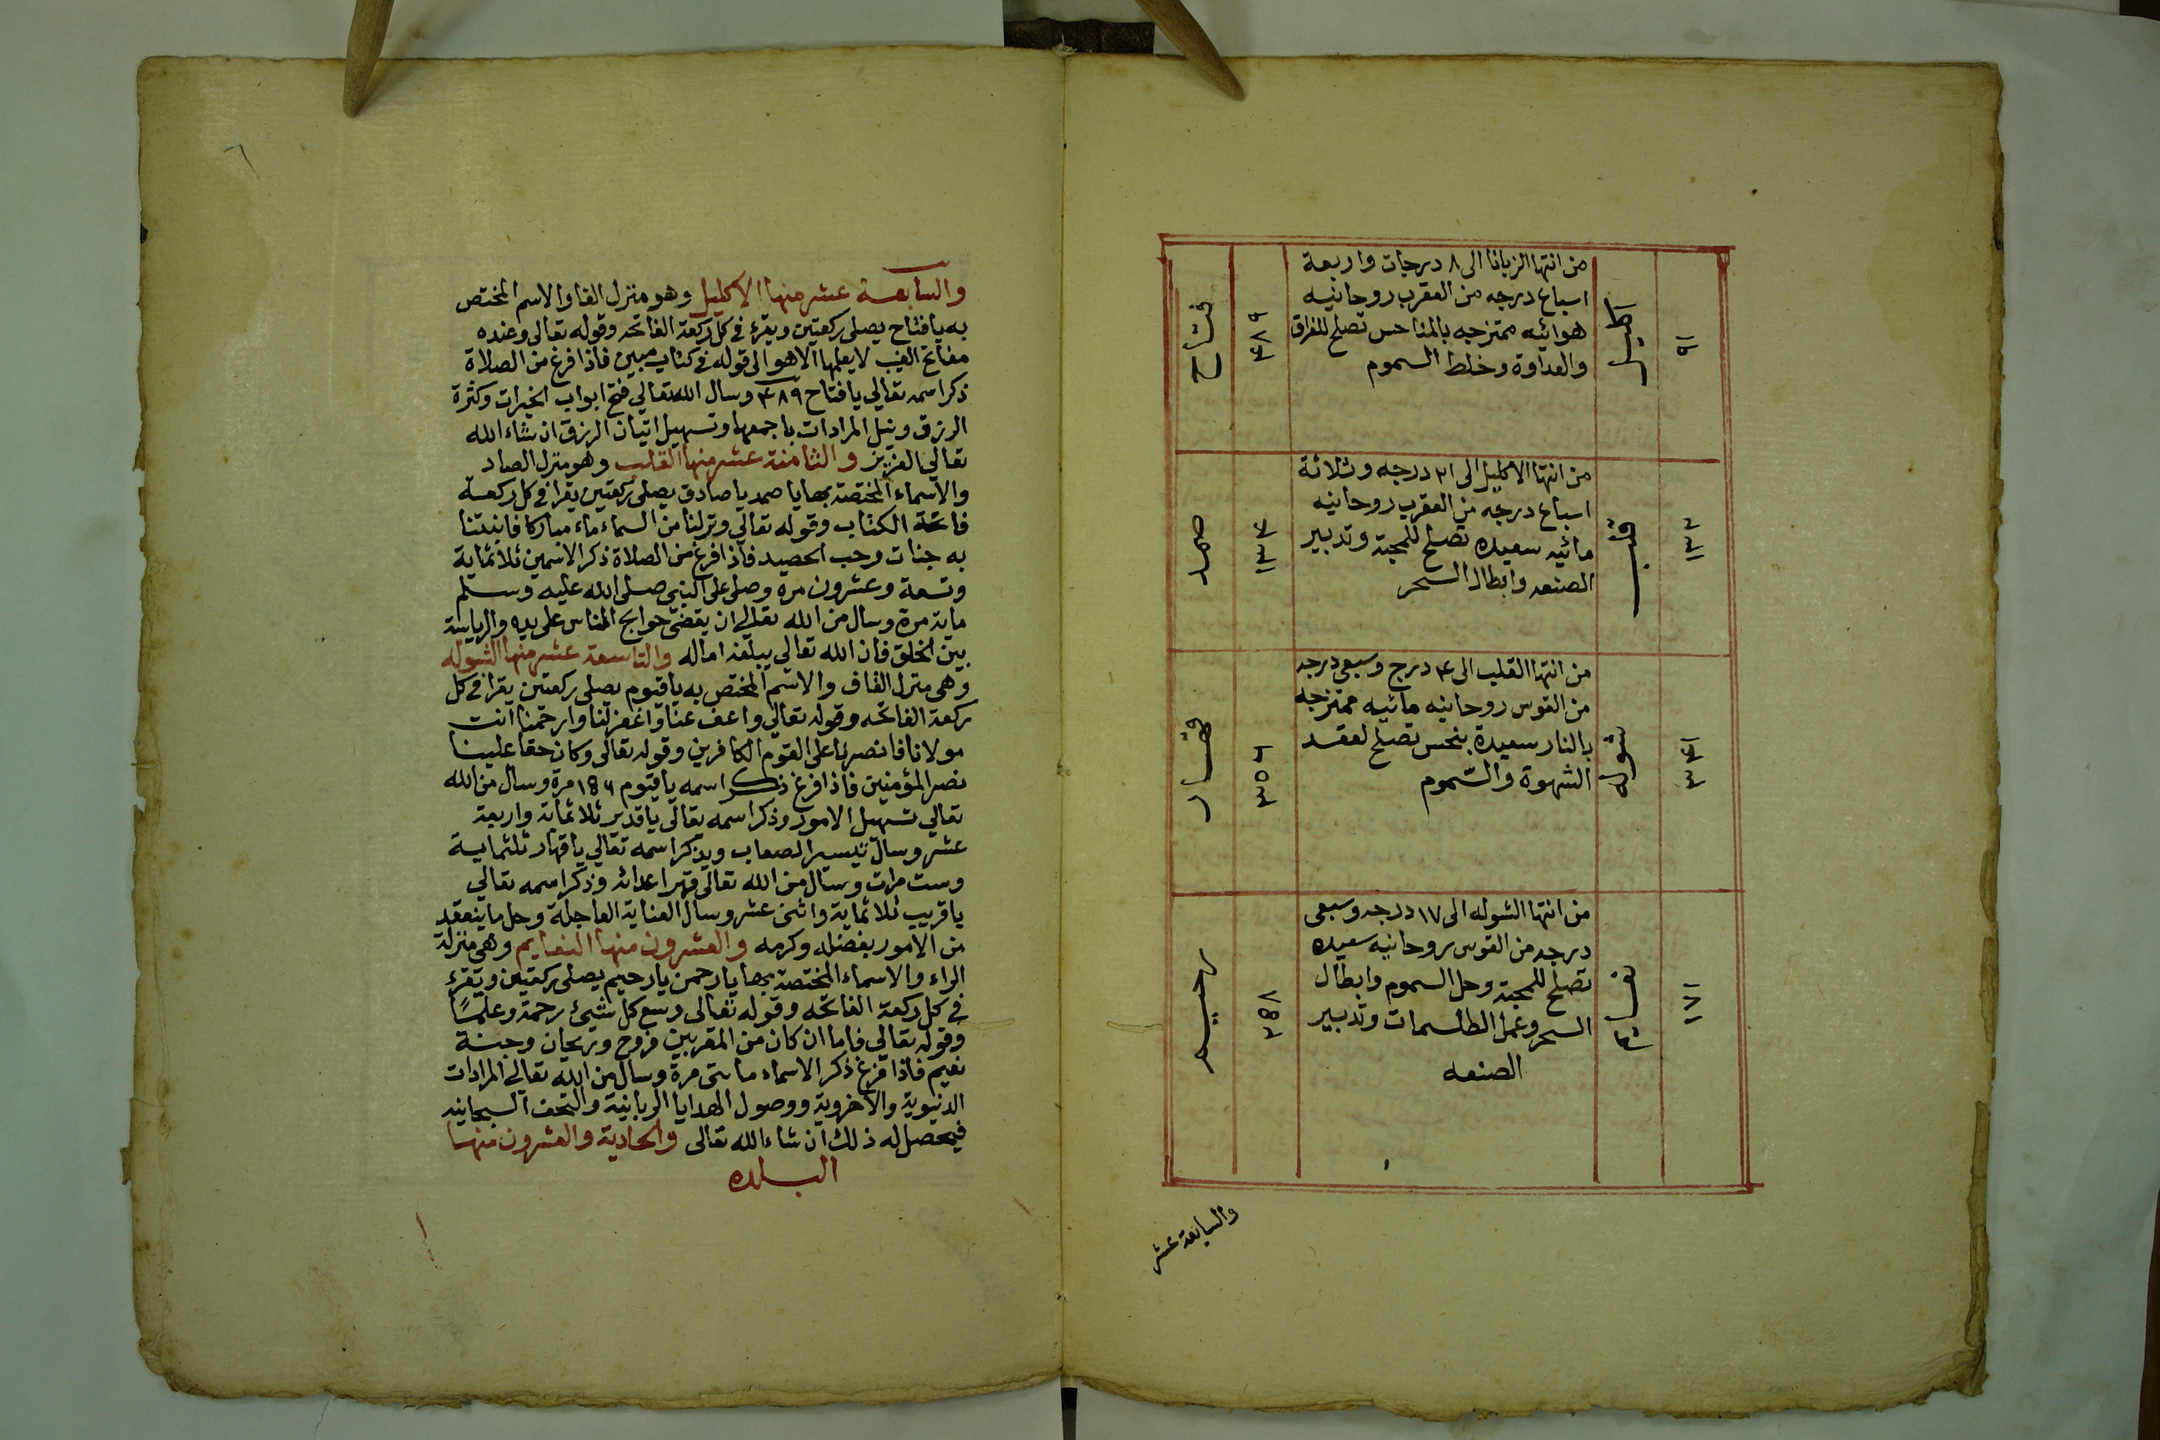 من انتها الزبانا الى ٨ درجات واربعة
اسباع درجه من العقرب روحانيه
هوائيه ممتزجه بالمناحس تصلح للفراق
والعداوة وخلط السموم
٩١
اكليل
٤٨٩
فتاح
من انتها الاكليل الى ٢١ درجه وثلاثة
اسباع درجه من العقرب روحانيه
مائيه سعيده تصلح للمحبة وتدبير
الصنعه وابطال السحر
١٣٢
قلب
١٣٤
صمد
من انتها القلب الى ٤ درج وسبعى درجه
من القوس روحانيه مائيه ممتزجه
بالنار سعيدة بنحس تصلح لعقد
الشهوة والسموم
٣٤١
شوله
٣٥٦
قهار
من انتها الشوله الى ١٧ درجه وسبعى
درجه من القوس روحانيه سعيده
تصلح للمحبة وحل السموم وابطال
السحر وعمل الطلسمات وتدبير
الصنعه
١٧١
نعايم
٢٥٨
رحيم
والسابعة عشر
٦
والسابعة عشر منها الاكليل وهو منزل الفا والاسم المختص
به يا فتاح يصلى ركعتين ويقرء فى كل ركعة الفاتحه وقوله تعالى وعنده
مفاتح الغيب لا يعلمها الا هو الى قوله فى كتاب مبين فاذا فرغ من الصلاة
ذكر اسمه تعالي يا فتاح ٤٨٩ وسال الله تعالي فتح ابواب الخيرات وكثرة
الرزق ونيل المرادات باجمعها وتسهيل اتيان الرزق ان شاء الله
تعالي العزيز والثامنة عشر منها القلب وهو منزل الصاد
والاسماء المختصة بها يا صمد يا صادق يصلى ركعتين يقرا فى كل ركعة
فاتحة الكتاب وقوله تعالي ونزلنا من السماء ماء مباركا فانبتنا
به جنات وحب الحصيد فاذا فرغ من الصلاة ذكر الاسمين ثلاثماية
وتسعة وعشرون مرة وصلى على النبى صلى الله عليه وسلم
ماية مرة وسال من الله تعالي ان يقضى حوايج الناس على يديه والرياسة
بين الخلق فان الله تعالي يبلغه اماله والتاسعة عشر منها الشوله
وهى منزل القاف والاسم المختص به يا قيوم يصلى ركعتين يقرا فى كل
ركعة الفاتحه وقوله تعالي واعف عنا واغفر لنا وارحمنا انت
مولانا فانصرنا على القوم الكافرين وقوله تعالى وكان حقا علينا
نصر المؤمنين فاذا فرغ ذكر اسمه يا قيوم ١٥٦ مرة وسال من الله
تعالي تسهيل الامور وذكر اسمه تعالى يا قدير ثلاثماية واربعة
عشر وسال تيسير الصعاب ويذكر اسمه تعالي يا قهار ثلثماية
وست مرات وسال من الله تعالى قهر اعدائه وذكر اسمه تعالي
يا قريب ثلاثماية واثنى عشر وسال العناية العاجلة وحل ما ينعقد
من الامور بفضله وكرمه والعشرون منها النعايم وهى منزلة
الراء والاسماء المختصة بها يا رحمن يا رحيم يصلى ركعتين ويقرء
فى كل ركعة الفاتحه وقوله تعالى وسع كل شيئ رحمة وعلما
وقوله تعالي فاما ان كان من المقربين فروح وريحان وجنة
نعيم فاذا فرغ ذكر الاسماء مائتى مرة وسال من الله تعالى المرادات
الدنيوية والاخروية ووصول الهدايا الربانية والتحف السبحانيه
فيحصل له ذلك ان شاء الله تعالى والحادية والعشرون منها
البلده